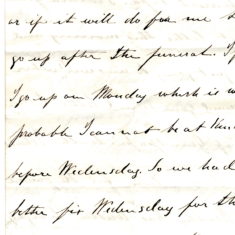 or if it will do for me to
go up after the funeral. If
I go up on Monday which is
probable I can not be at
before Wednesday. So we had
better fix Wednesday for th